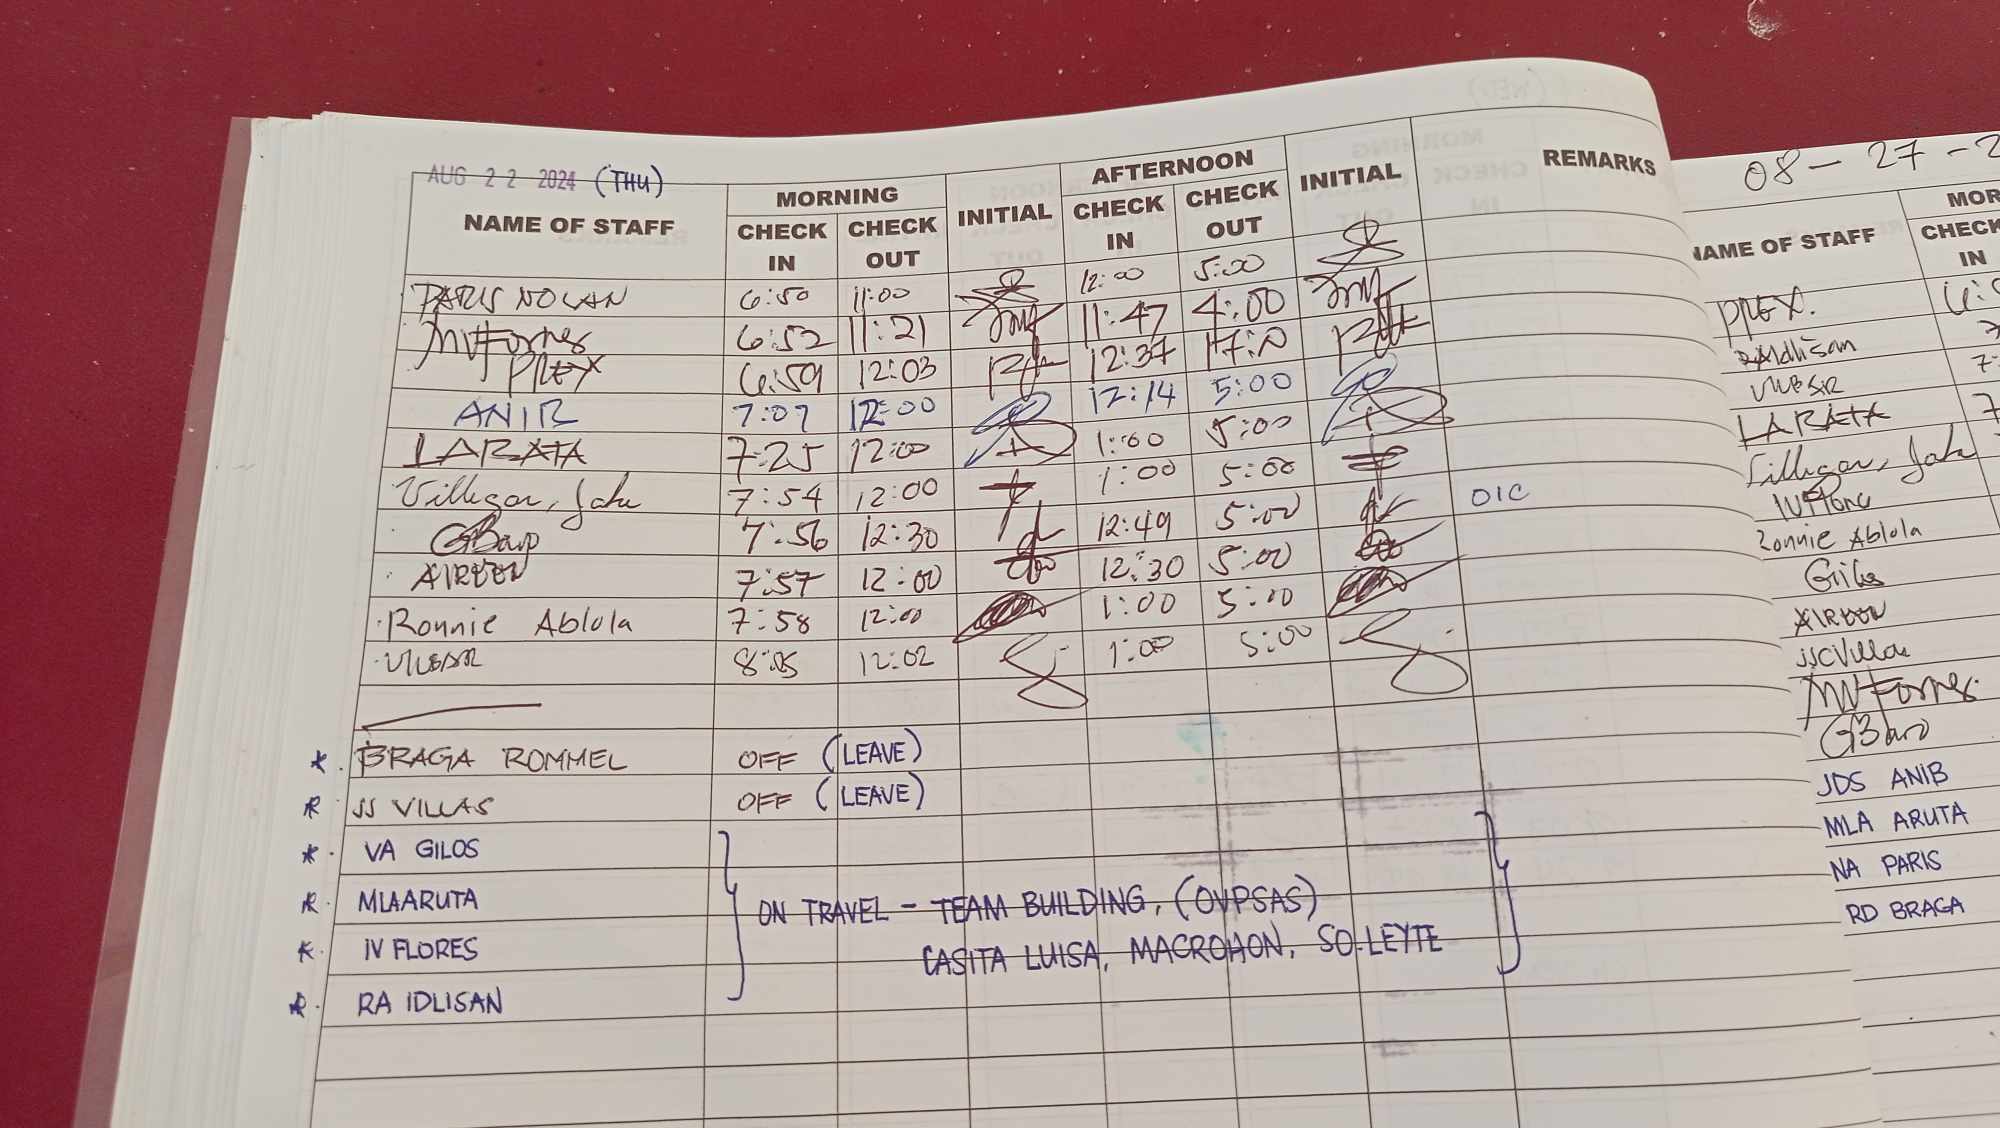 AUG 22 2024 (THU)
NAME OF STAFF MORNING INITIAL AFTERNOON INITIAL REMARKS
CHECK IN CHECK OUT CHECK IN CHECK OUT
PARIS NOLAN 6:50 11:00 12:00 5:00
MVFornes 6:52 11:21 11:47 4:00
PREX 6:59 12:03 12:37
ANIB 7:07 12:00 12:14 5:00
LARATA 7:25 12:00 1:00 5:00
Villegar, Jake 7:54 12:00 1:00 5:00
GBaro 7:56 12:30 12:49 5:00 OIC
AIREEN 7:57 12:00 12:30 5:00
Ronnie Ablola 7:58 12:00 1:00 5:00
8:05 12:02 1:00 5:00
* BRAGA ROMMEL OFF (LEAVE)
* JS VILLAS OFF (LEAVE)
* VA GILOS
* MLAARUTA
* IV FLORES
* RA IDLISAN
ON TRAVEL - TEAM BUILDING, (OVPSAS)
CASITA LUISA, MACROHON, SO.LEYTE
08-27-2
NAME OF STAFF MOR
CHECK IN
PREX.
RAIdlisan
LARATA 7
Villegar, Jake
Ronnie Ablola
Gilos
AIREEN
JSCVillas
MVFornes
GBaro
JDS ANIB
MLA ARUTA
NA PARIS
RD BRAGA